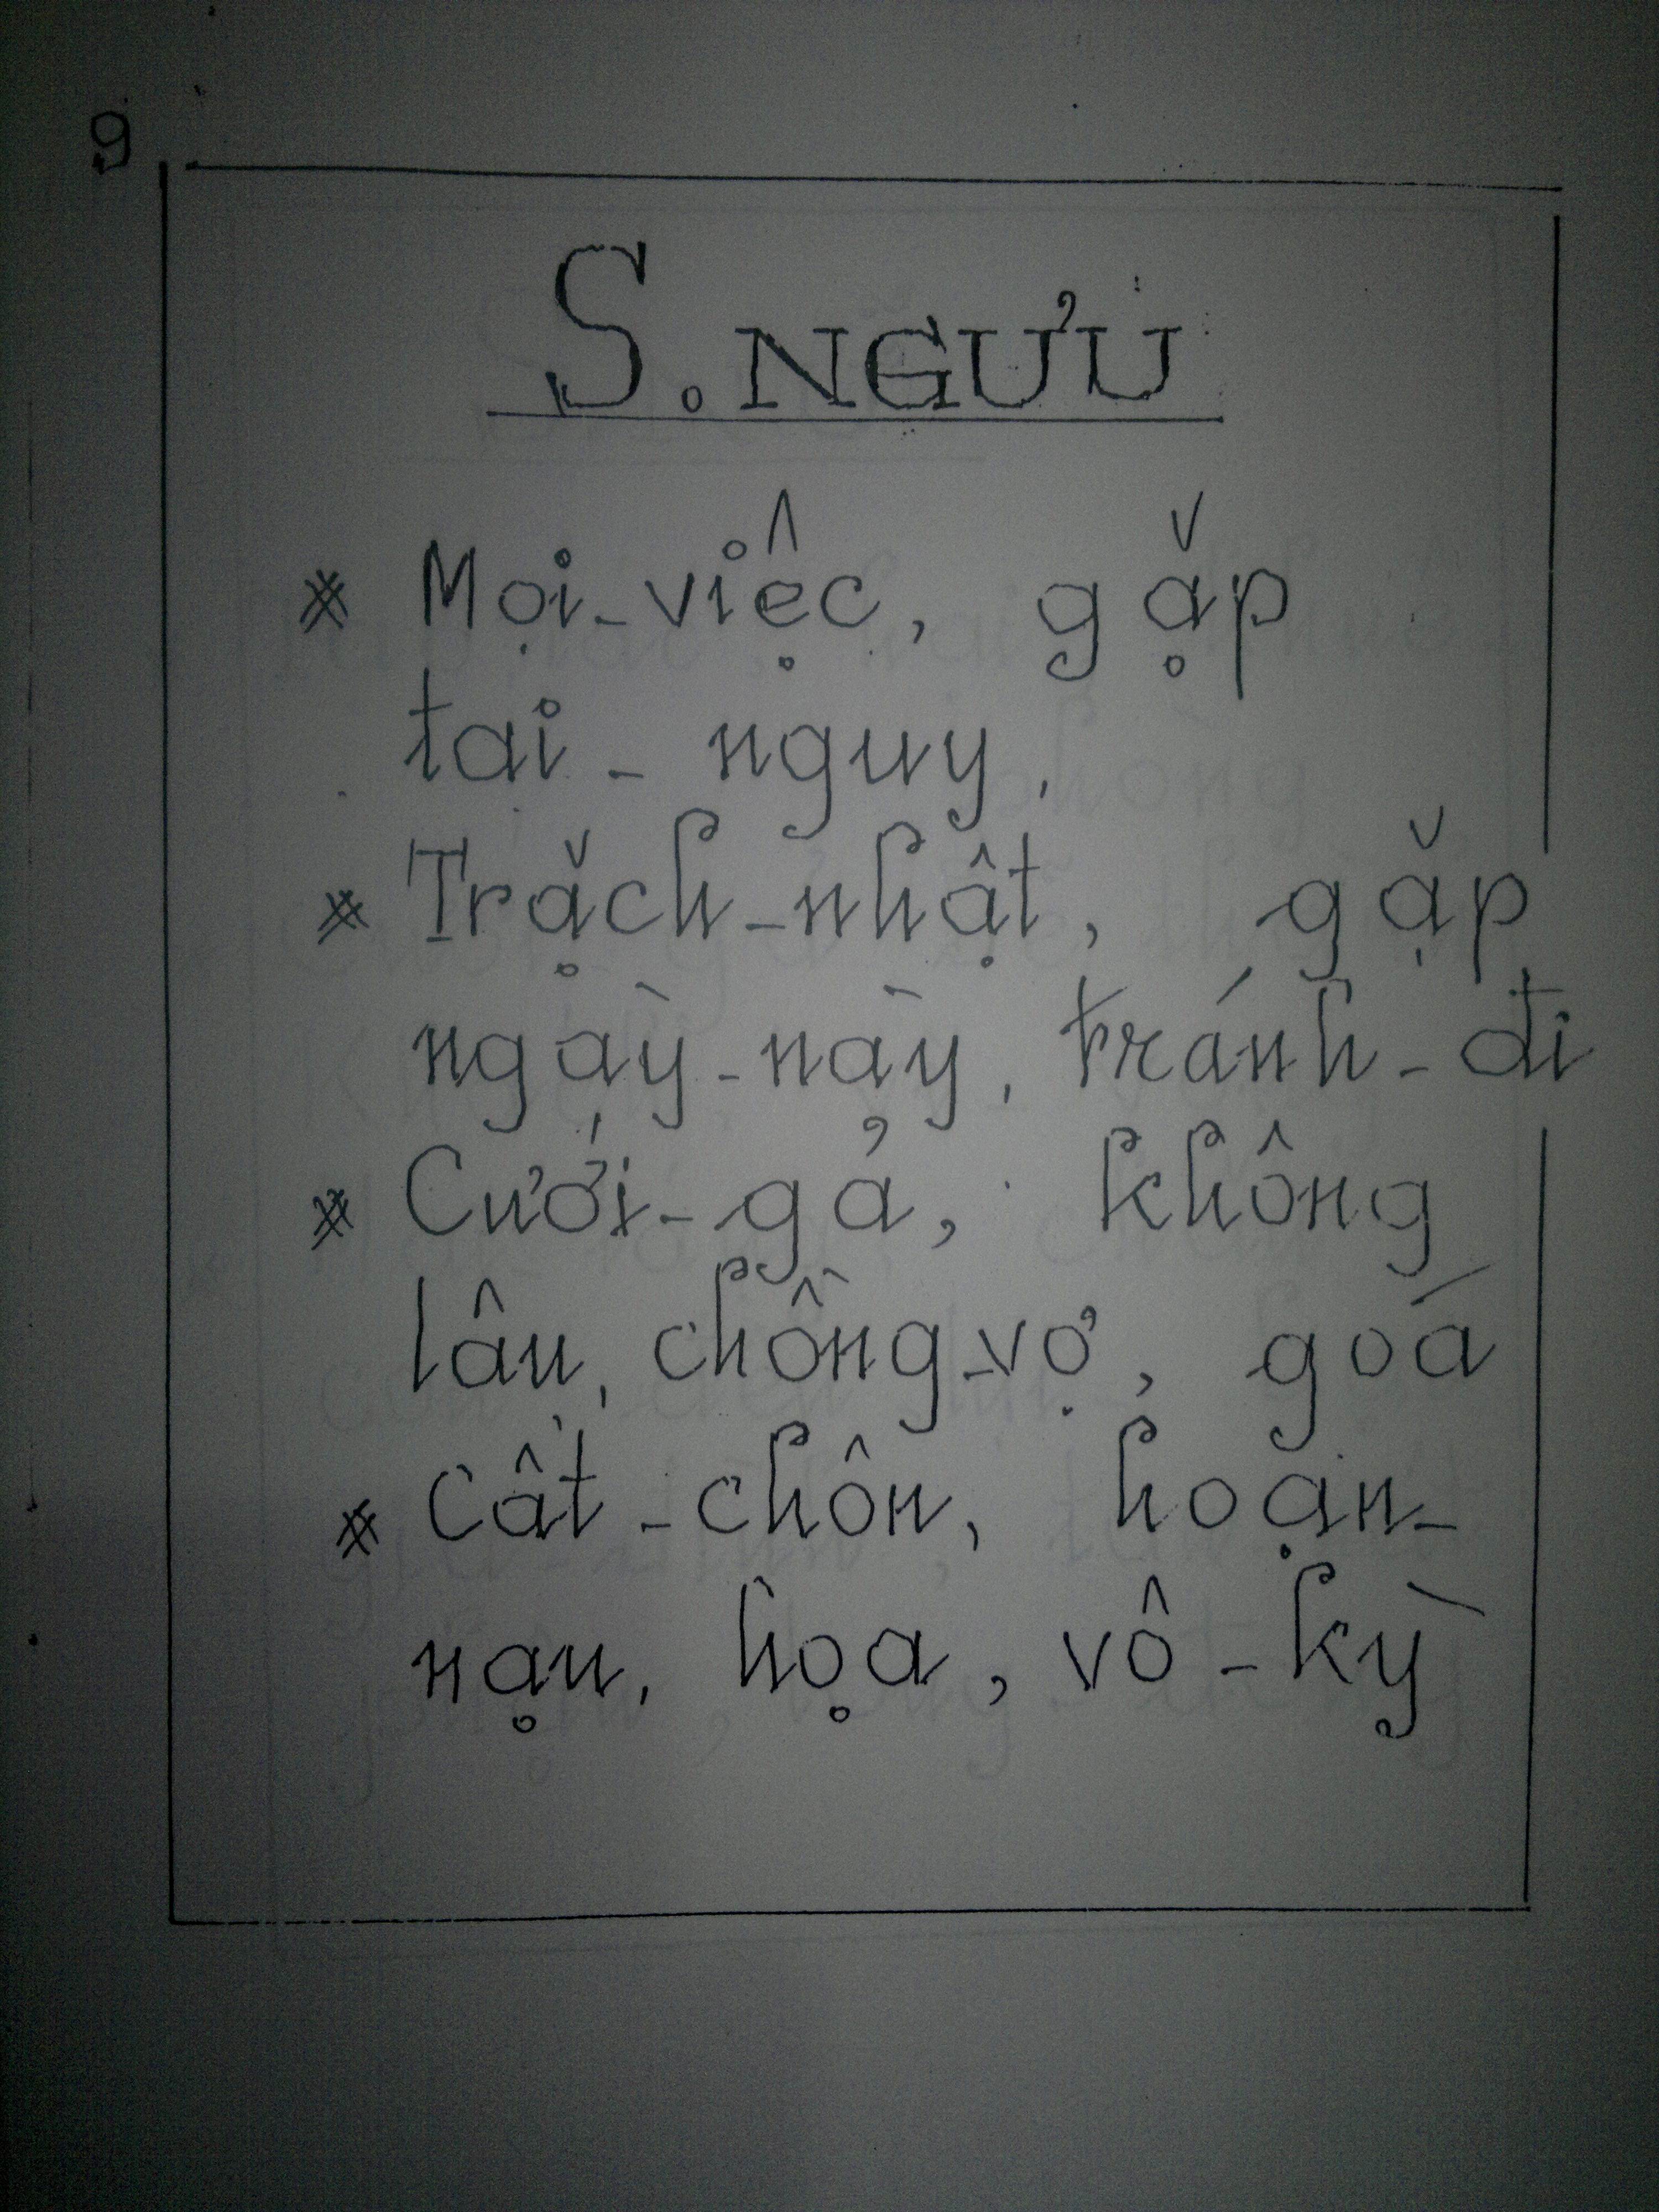 9
S. NGƯU
* Mọi-việc, gặp
tai - nguy,
* Trặch-nhật, gặp
ngày-này, tránh-đi
* Cưới-gả, không
lâu, chồng-vợ, goá
* Cất-chôn, hoạn-
nạn, họa, vô-kỳ